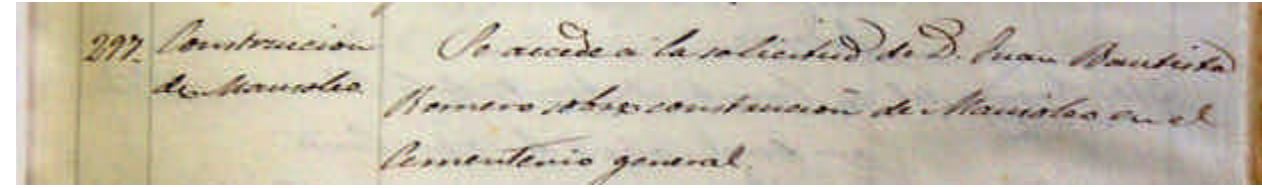 297. Construccion
de Mausoleo
Se accede á la solicitud de D. Juan Bautista
Romero sobre construccion de Mausoleo en el
Cementerio general.